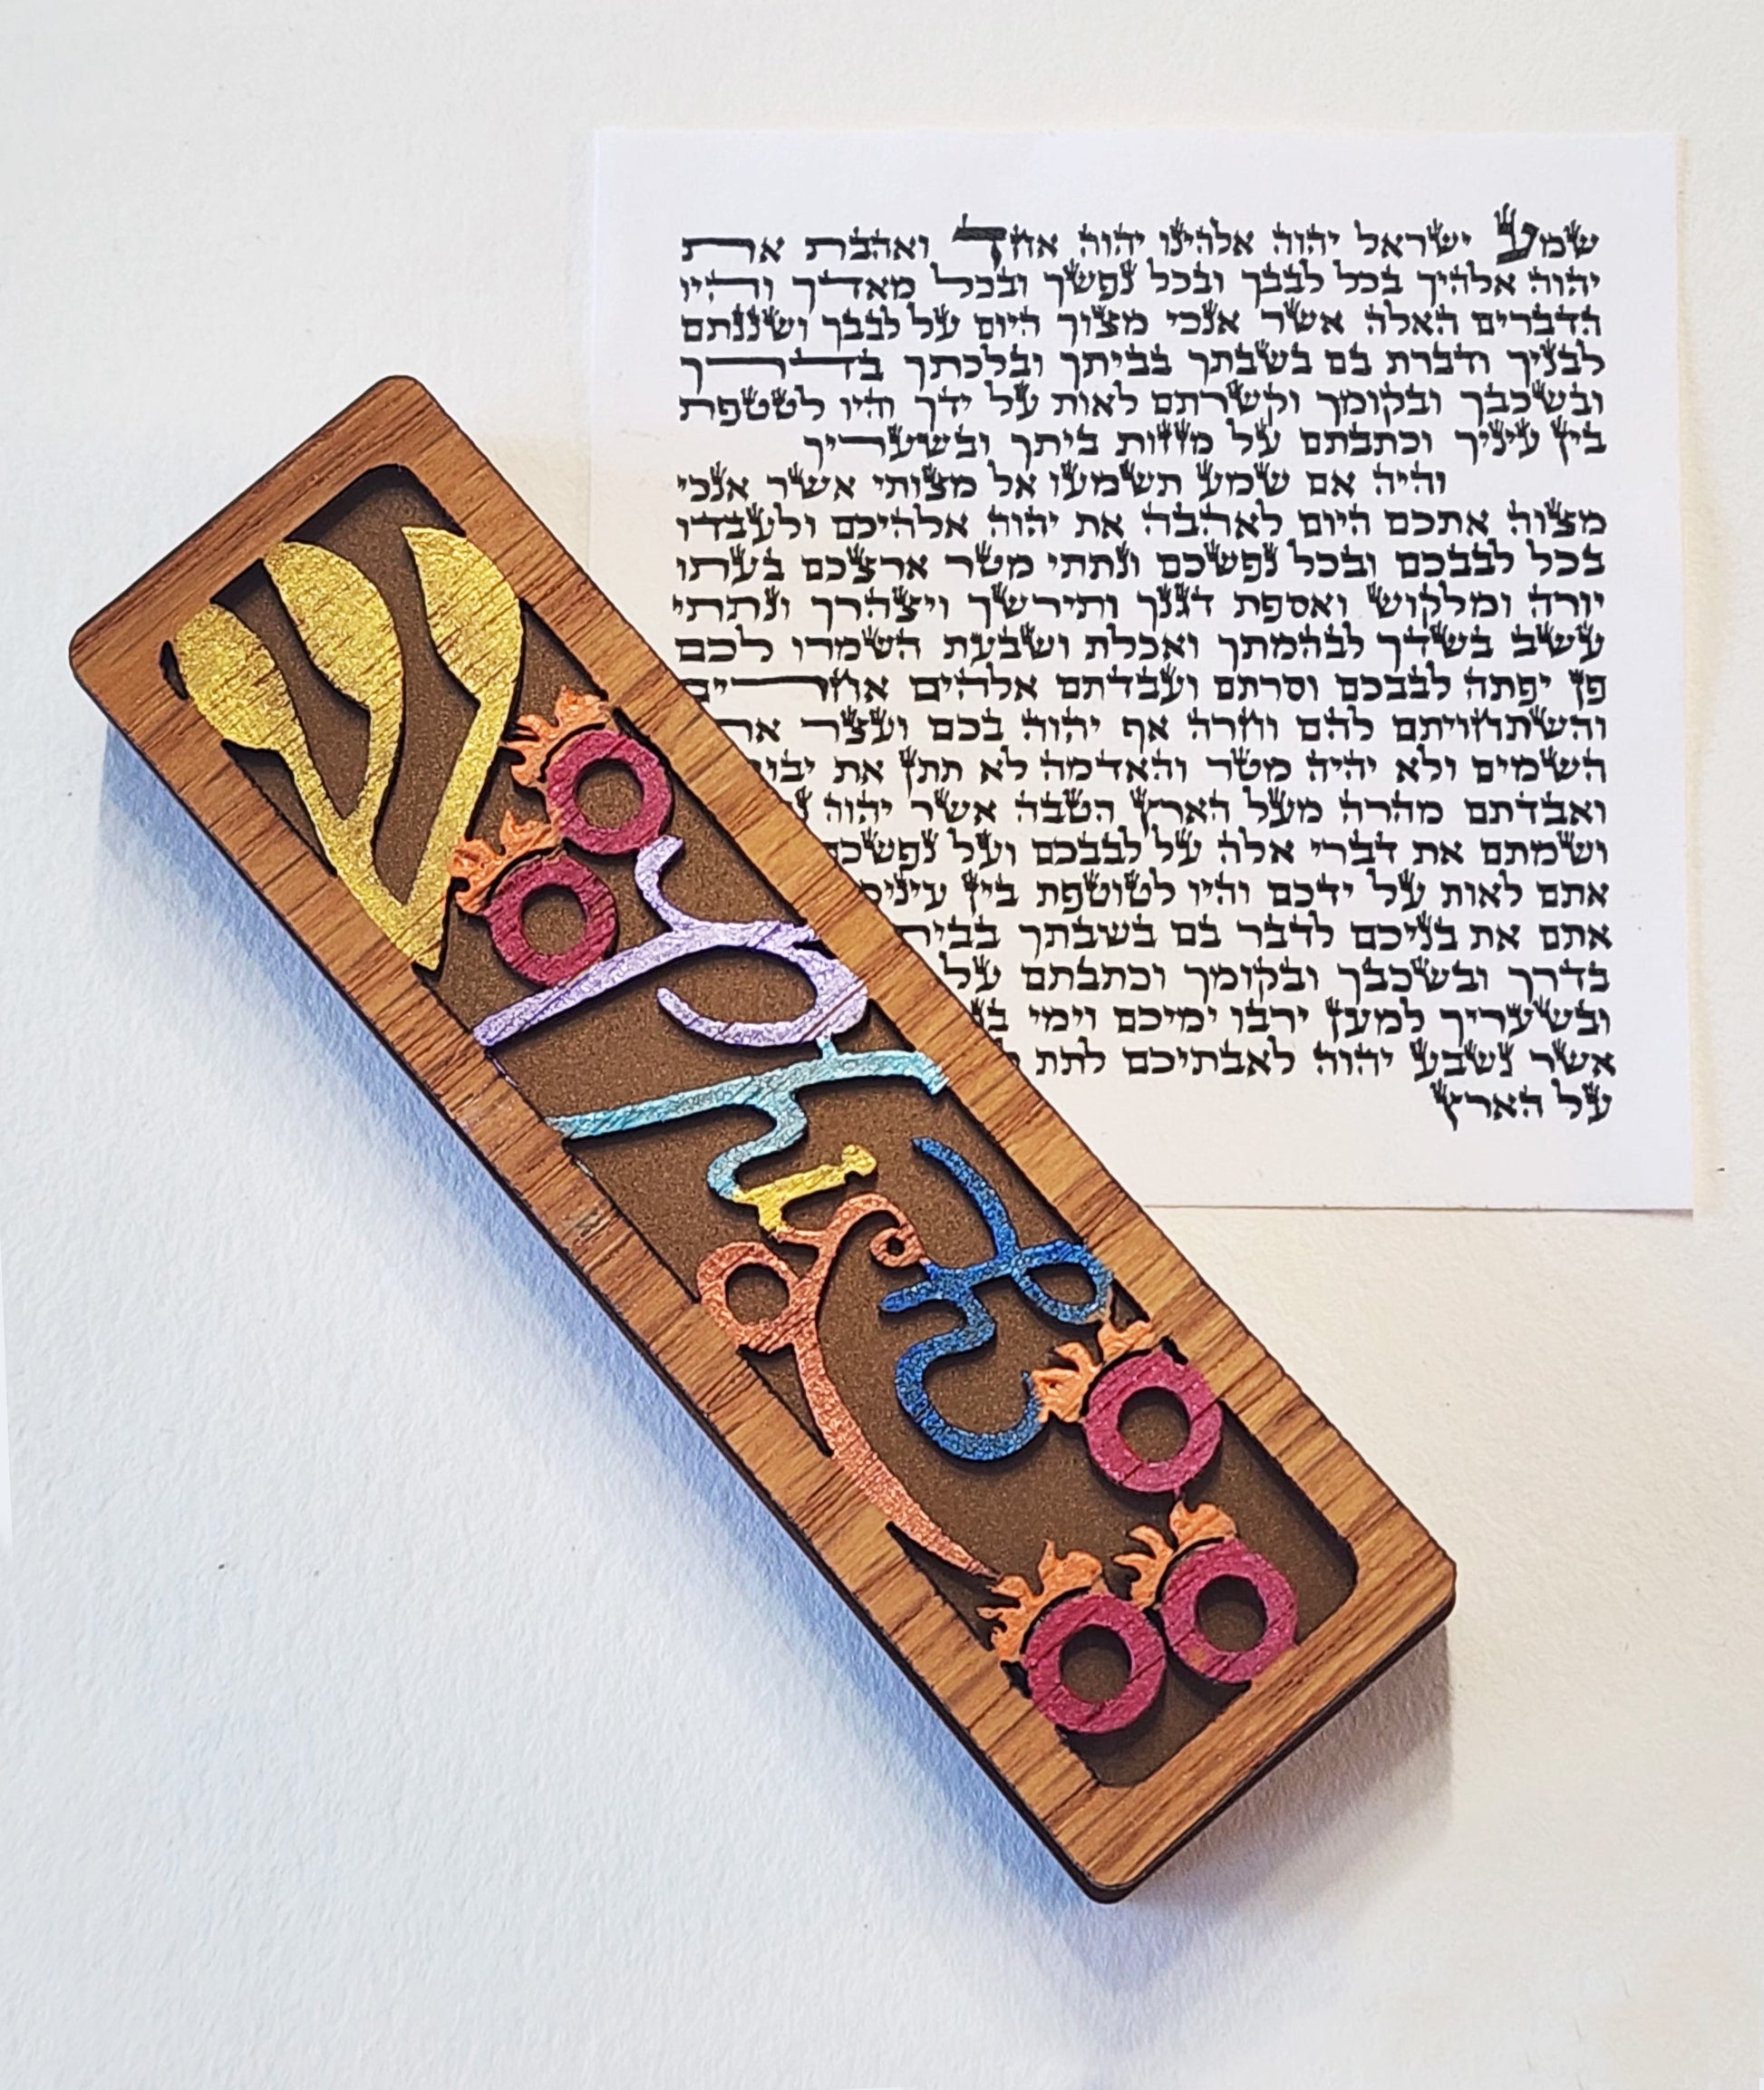 שמע ישראל יהוה אלהינו יהוה אחד ואהבת את
יהוה אלהיך בכל לבבך ובכל נפשך ובכל מאדך והיו
הדברים האלה אשר אנכי מצוך היום על לבבך ושננתם
לבניך ודברת בם בשבתך בביתך ובלכתך בדרך
ובשכבך ובקומך וקשרתם לאות על ידך והיו לטטפת
בין עיניך וכתבתם על מזזות ביתך ובשעריך
והיה אם שמע תשמעו אל מצותי אשר אנכי
מצוה אתכם היום לאהבה את יהוה אלהיכם ולעבדו
בכל לבבכם ובכל נפשכם ונתתי מטר ארצכם בעתו
יורה ומלקוש ואספת דגנך ותירשך ויצהרך ונתתי
עשב בשדך לבהמתך ואכלת ושבעת השמרו לכם
פן יפתה לבבכם וסרתם ועבדתם אלהים אחרים
והשתחויתם להם וחרה אף יהוה בכם ועצר
השמים ולא יהיה מטר והאדמה לא תתן את
ואבדתם מהרה מעל הארץ הטבה אשר יהוה
ושמתם את דברי אלה על לבבכם ועל
אתם לאות על ידכם והיו לטוטפת בין
אתם את בניכם לדבר בם בשבתך
בדרך ובשכבך ובקומך וכתבתם על
ובשעריך למען ירבו ימיכם וימי
אשר נשבע יהוה לאבתיכם לתת
על הארץ
ש